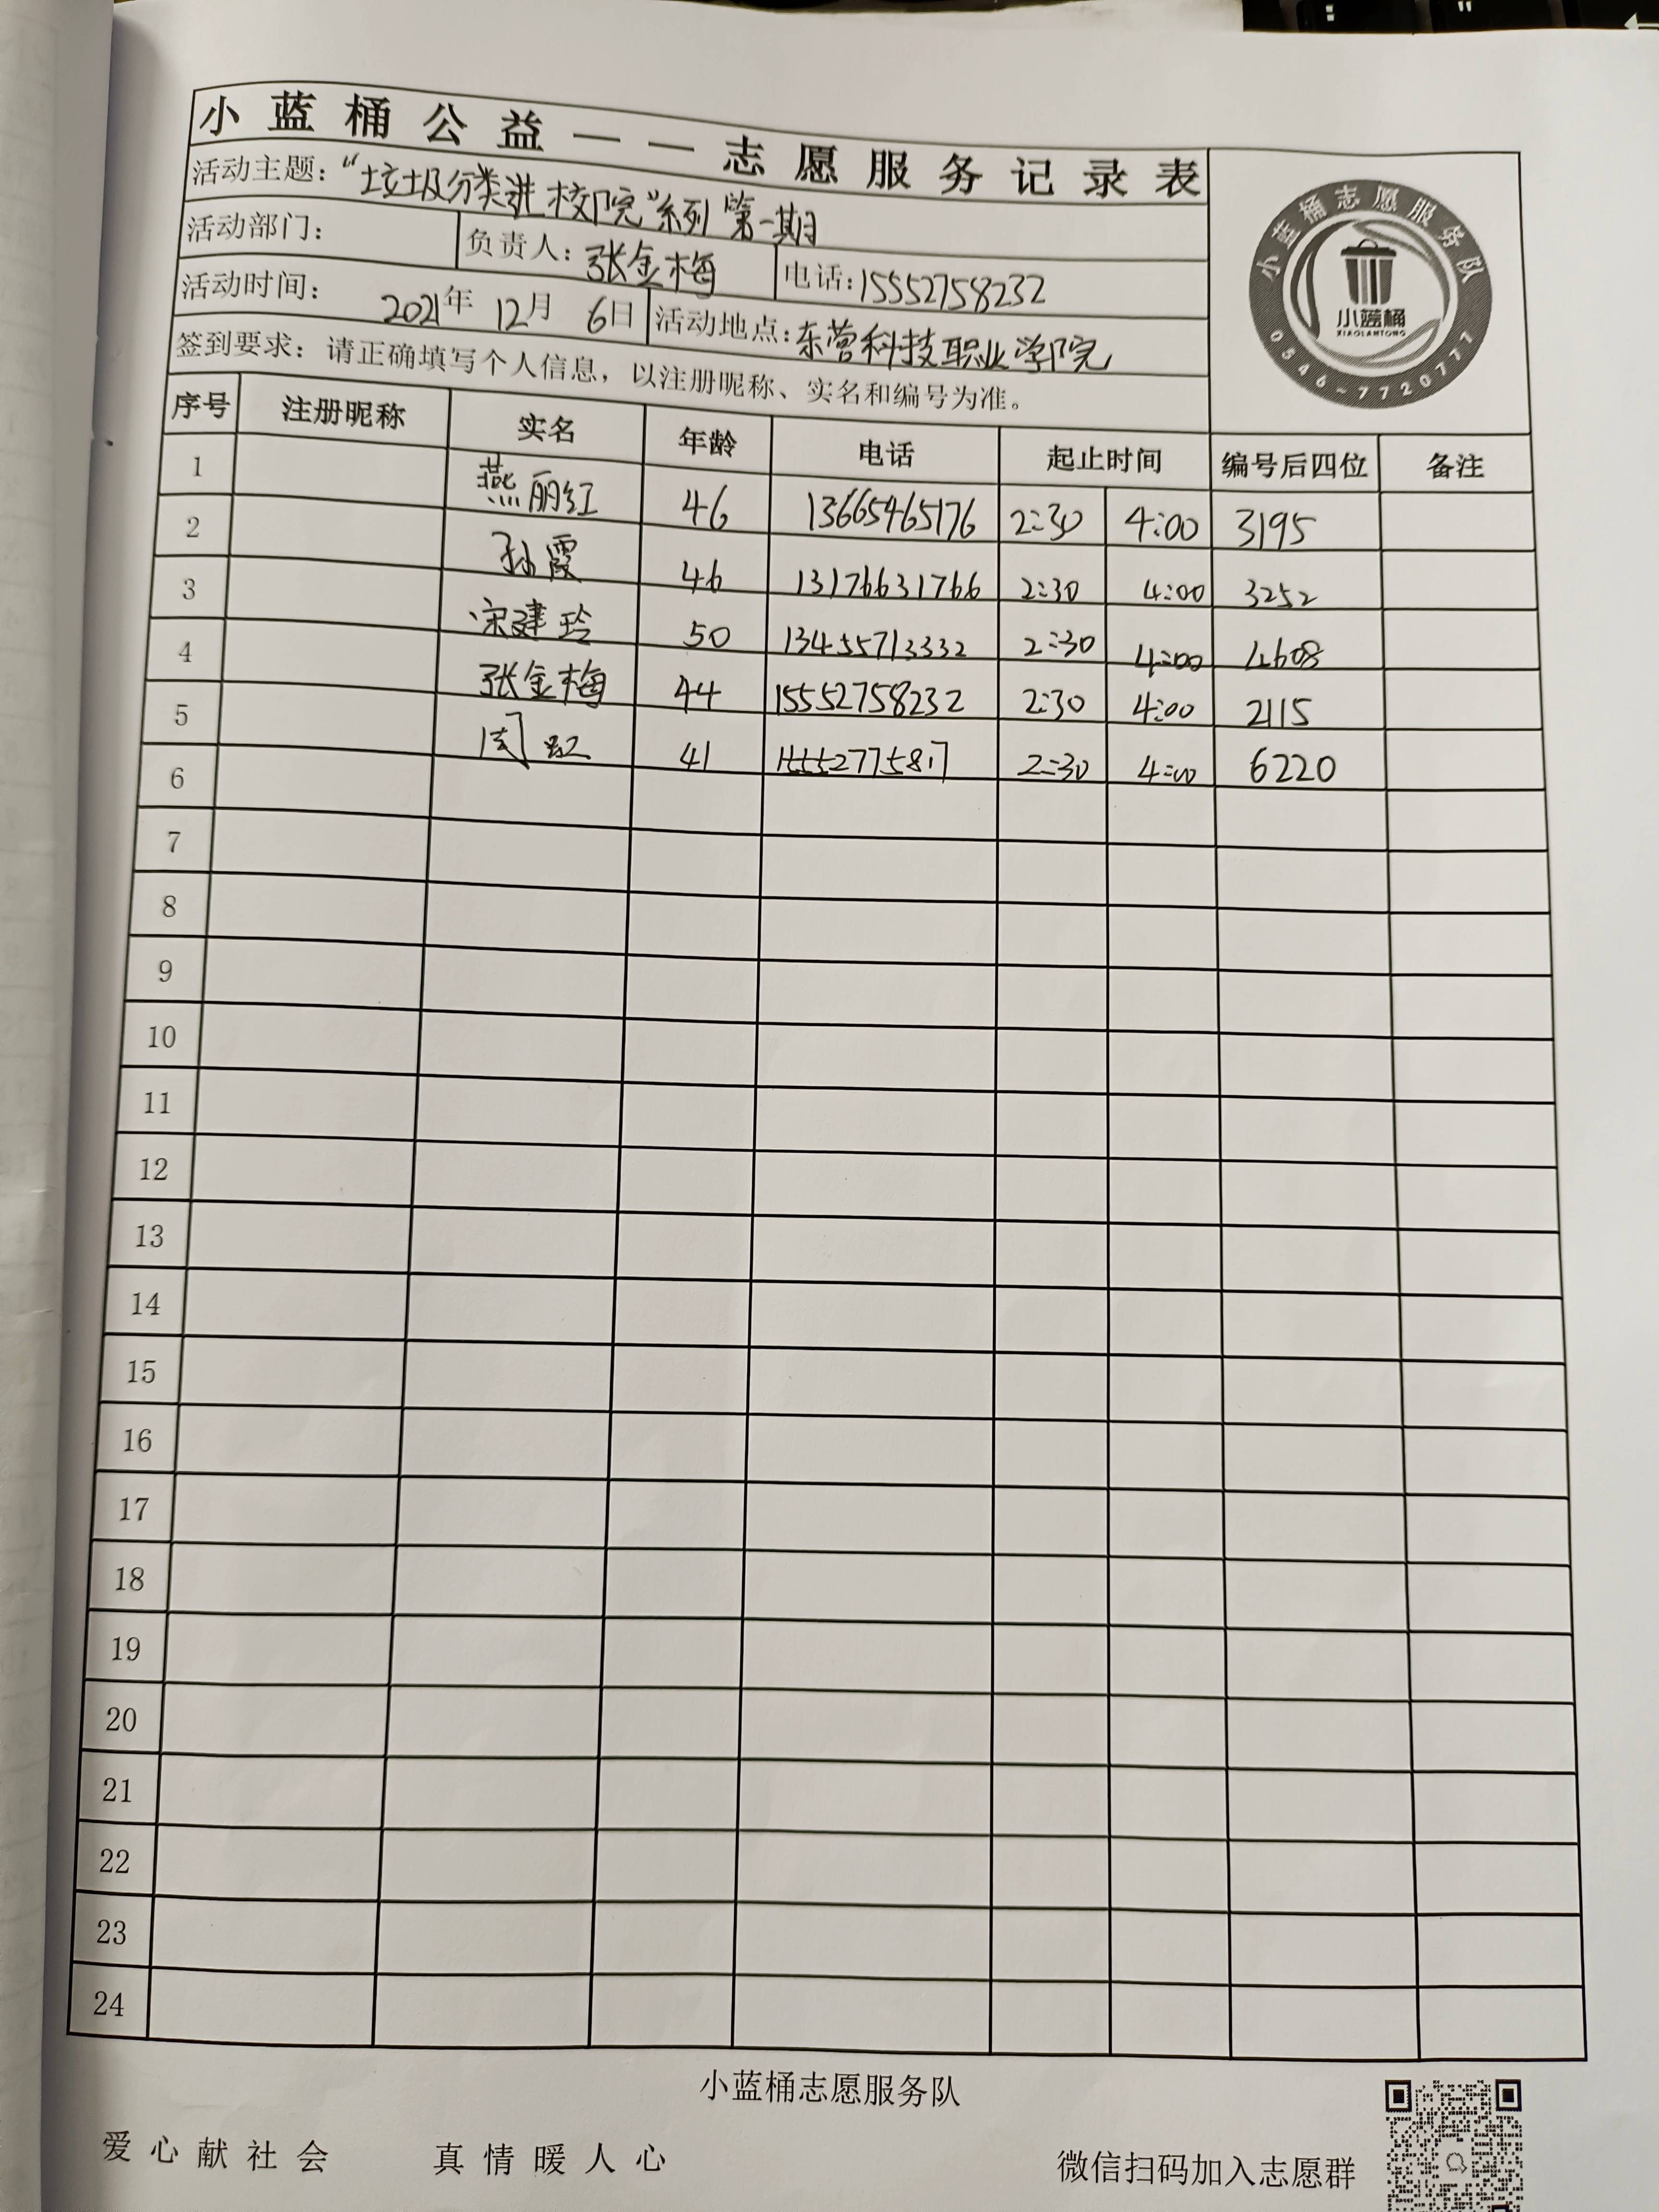 小蓝桶公益——志愿服务记录表
活动主题：“垃圾分类进校院”系列第一期
活动部门： 负责人：张金梅 电话：15552758232
活动时间： 2021年 12月 6日 活动地点：东营科技职业学院
签到要求：请正确填写个人信息，以注册昵称、实名和编号为准。
小蓝桶志愿服务队
小蓝桶
XIAOLANTONG
0546-7720777
序号 注册昵称 实名 年龄 电话 起止时间 编号后四位 备注
1 燕丽红 46 13665465176 2:30 4:00 3195
2 孙霞 46 13176631766 2:30 4:00 3252
3 宋建玲 50 13455713332 2:30 4:00 4608
4 张金梅 44 15552758232 2:30 4:00 2115
5 周 41 2:30 4:00 6220
6
7
8
9
10
11
12
13
14
15
16
17
18
19
20
21
22
23
24
小蓝桶志愿服务队
爱心献社会 真情暖人心 微信扫码加入志愿群